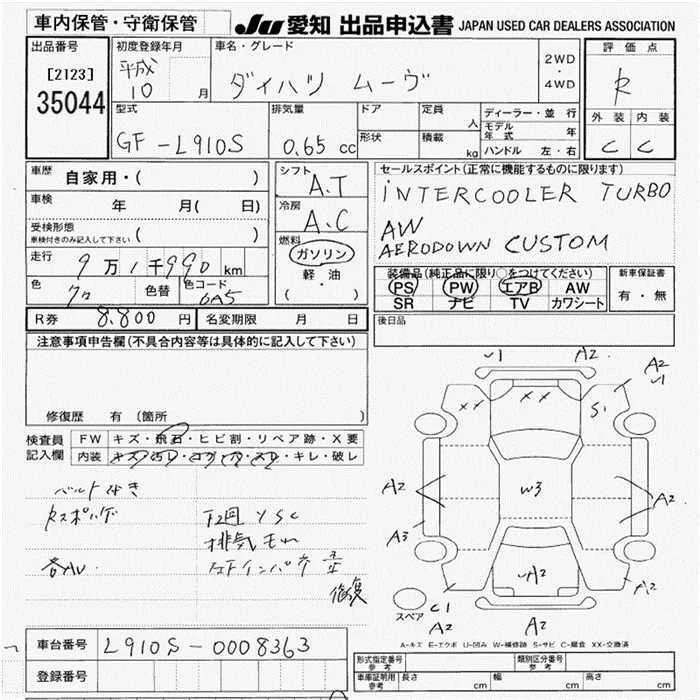 車内保管・守衛保管
JU 愛知 出品申込書 JAPAN USED CAR DEALERS ASSOCIATION
出品番号
[2123]
35044
初度登録年月
平成
10 月
車名・グレード
ダイハツ ムーヴ
2WD
・
4WD
評価点
R
外装 内装
C C
型式
GF-L910S
排気量
0.65 cc
ドア
形状
定員
人
積載
kg
ディーラー・並行
モデル年式 年
ハンドル 左・右
車歴 自家用・( )
車検 年 月( 日)
受検形態
車検付きのみ記入して下さい ( )
走行 9万1千990km
色 クロ 色替 色コード 6A5
シフト
A.T
冷房
A.C
燃料
ガソリン
軽・油
( )
セールスポイント(正常に機能するものに限ります)
iNTERCOOLER TURBO
AW
AERODOWN CUSTOM
装備品(純正品に限り○をつけてください)
PS PW エアB AW
SR ナビ TV カワシート
新車保証書
有・無
R券 8.800円 名変期限 月 日
後日品
注意事項申告欄(不具合内容等は具体的に記入して下さい)
修復歴 有 (箇所 )
検査員
記入欄
FW キズ・飛石・ヒビ割・リペア跡・X要
内装 キズ・汚レ・コゲ・穴・スレ・キレ・破レ
ベルト
排気モレ
修復
√1 A2
A2
√1
XX XX S1
A2 W3 A2
A3
√A2 A2
スペア C1
A2 A2
A-キズ E-エクボ U-凹み W-補修跡 S-サビ C-腐食 XX-交換済
車台番号 L910S-0008363
登録番号
形式指定番号
参考
類別区分番号
参考
車庫証明用
参考
長さ cm 幅 cm 高さ cm